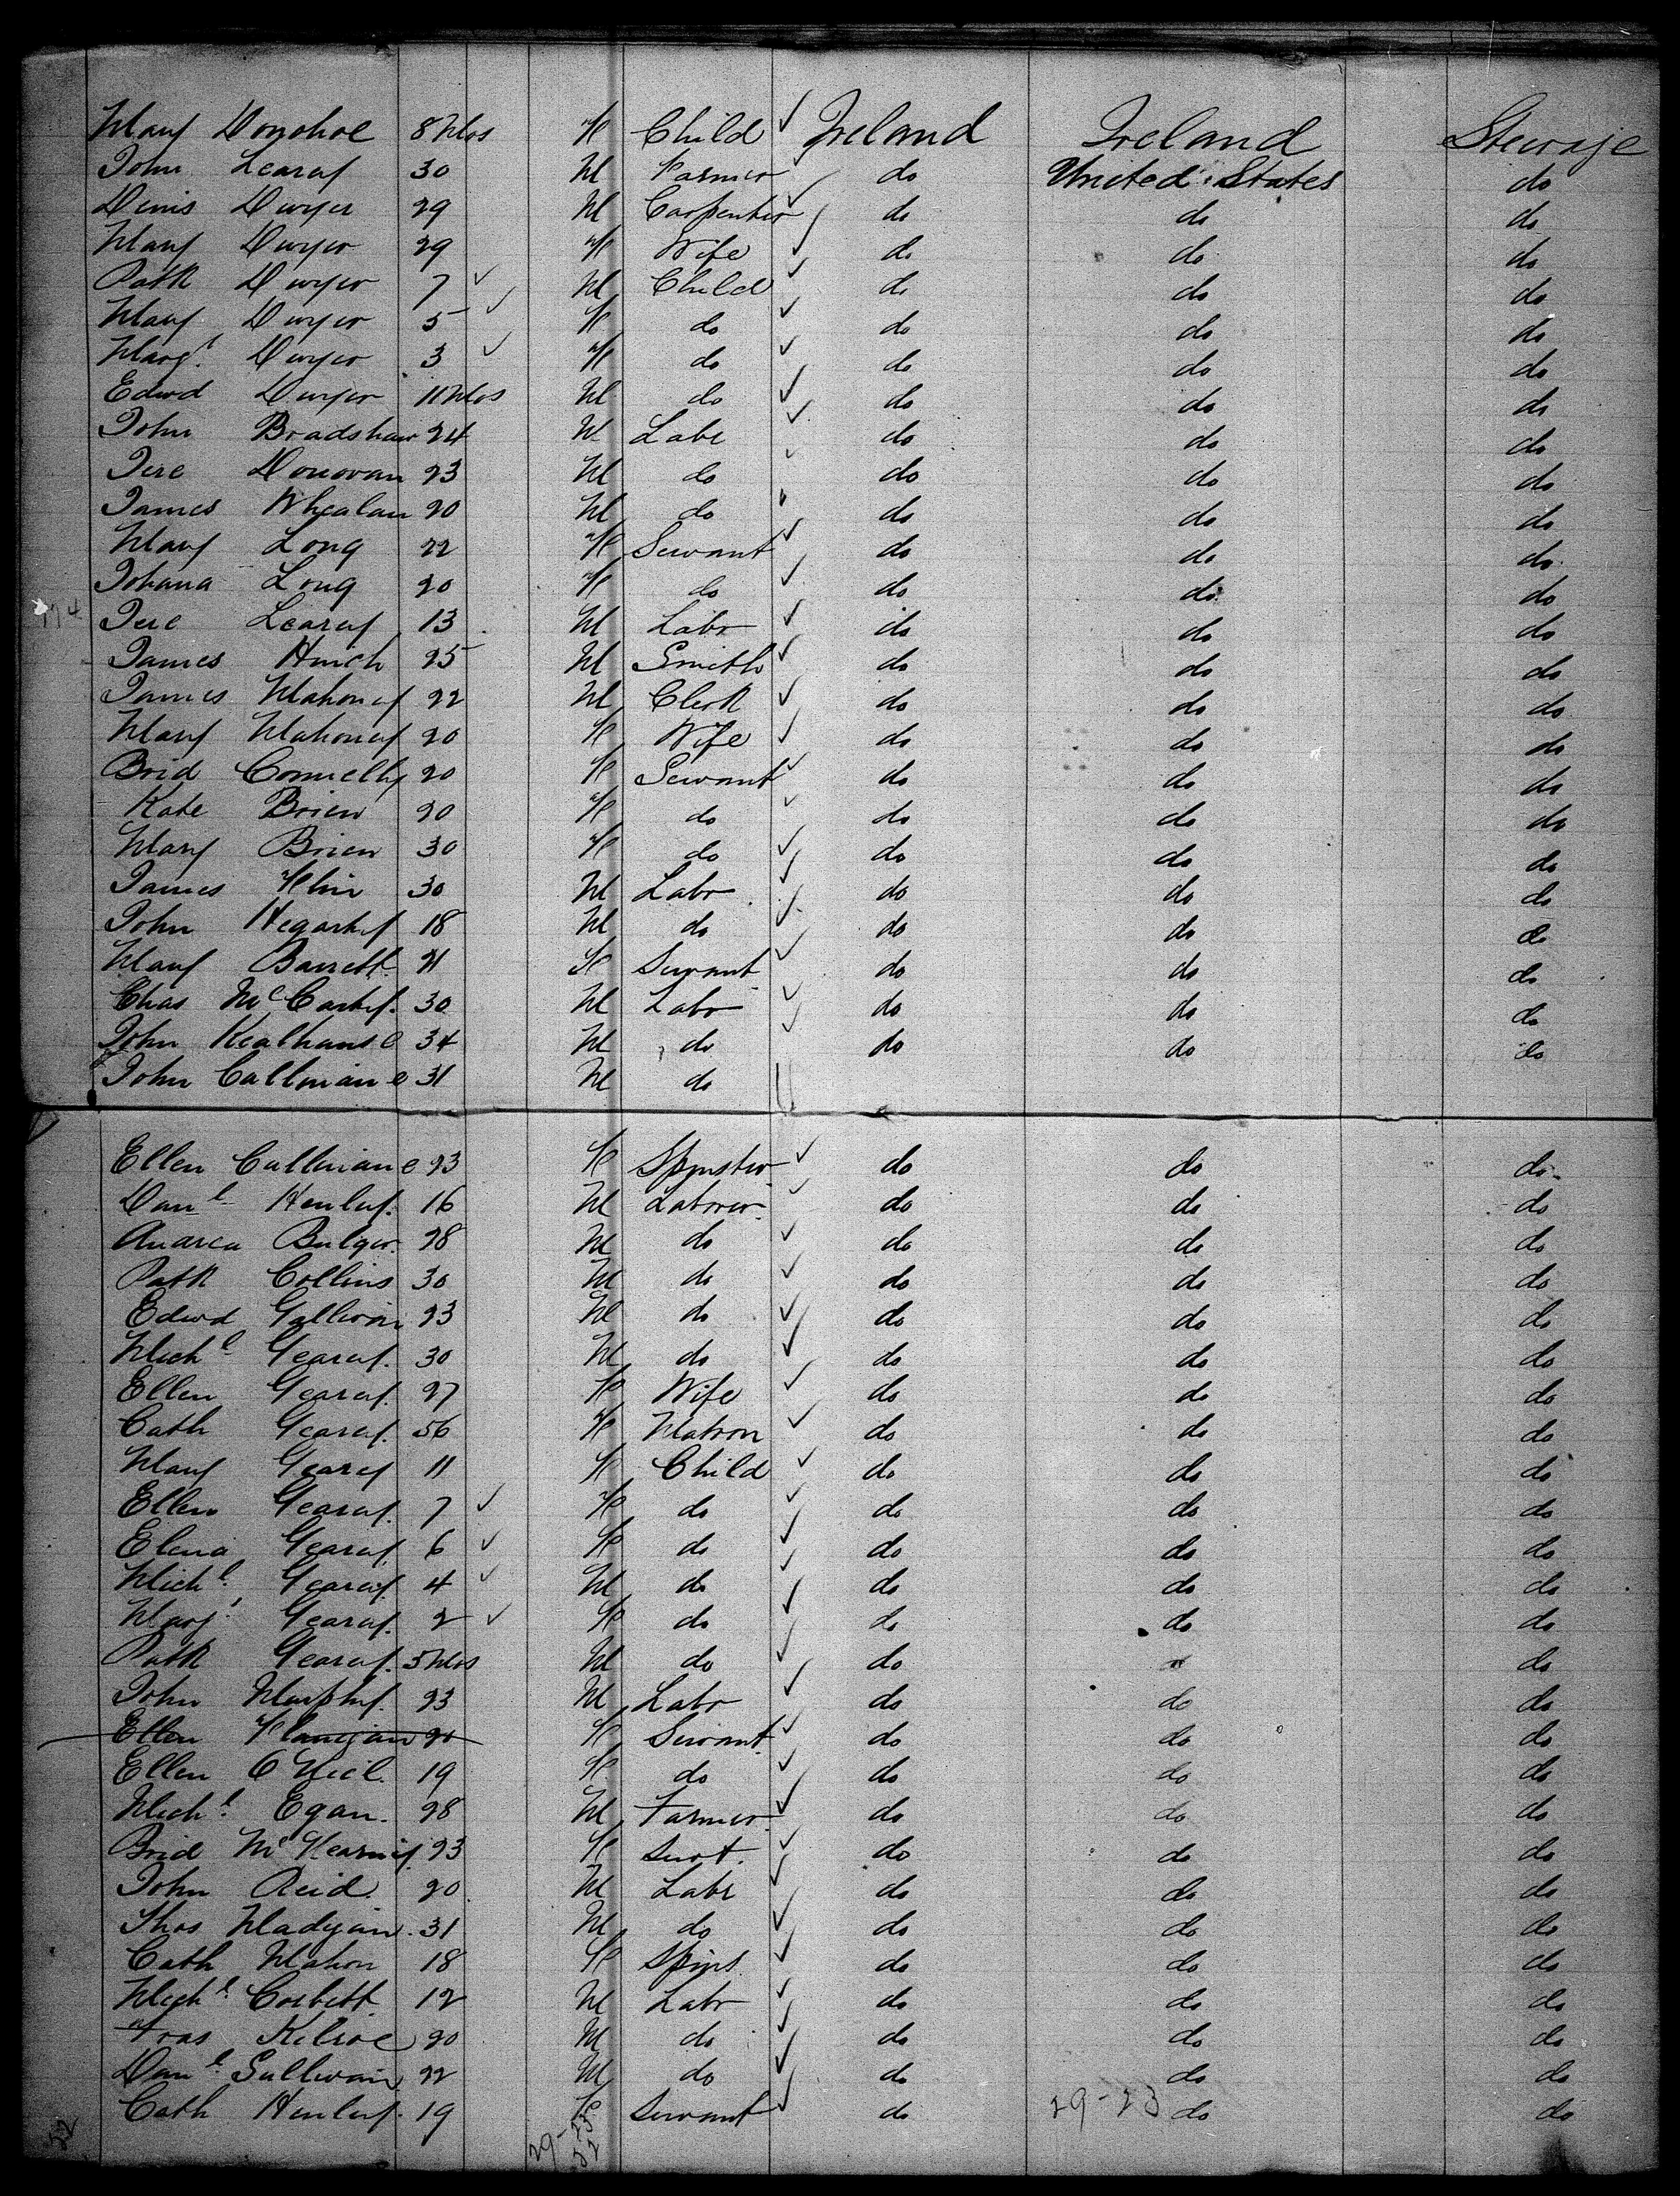 Mary Donohoe 8 Mos F Child Ireland Ireland Steerage
John Leary 30 M Farmer do United States do
Denis Dwyer 29 M Carpenter do do do
Mary Dwyer 29 F Wife do do do
Patk Dwyer 7 M Child do do do
Mary Dwyer 5 F do do do do
Margt Dwyer 3 F do do do do
Edwd Dwyer 11 Mos M do do do do
John Bradshaw 24 M Labr do do do
Jere Donovan 23 M do do do do
James Whealan 20 M do do do do
Mary Long 22 F Servant do do do
Johana Long 20 F do do do do
Jere Leary 13 M Labr do do do
James 25 M Smith do do do
James Mahony 22 M Clerk do do do
Mary Mahony 20 F Wife do do do
Brid Connelly 20 F Servant do do do
Kate Brien 20 F do do do do
Mary Brien 30 F do do do do
James 30 M Labr do do do
John Hegarty 18 M do do do do
Mary Barrett 21 F Servant do do do
Chas McCarty 30 M Labr do do do
John 34 M do do do do
John Callinane 31 M do
Ellen Callinane 23 F Spinster do do do
Danl Henley 16 M Laborer do do do
Andrew Bulger 28 M do do do do
Patk Collins 30 M do do do do
Edwd Gallivan 23 M do do do do
Michl Geary 30 M do do do do
Ellen Geary 27 F Wife do do do
Cath Geary 56 F Matron do do do
Mary Geary 11 F Child do do do
Ellen Geary 7 F do do do do
Geary 6 F do do do do
Michl Geary 4 M do do do do
Margt Geary 2 F do do do do
Patk Geary 5 Mos M do do do
John Murphy 23 M Labr do do do
Ellen Flanigan 20 F Servant do do do
Ellen O Neil 19 F do do do do
Michl Egan 28 M Farmer do do do
Brid 23 F Servt do do do
John Reid 20 M Labr do do do
Thos Madigan 31 M do do do do
Cath Mahon 18 F Spins do do do
Michl Corbett 12 M Labr do do do
Fras Kilroe 20 M do do do do
Danl Sullivan 22 M do do do do
Cath Henley 19 F Servant do 29-23 do do
52 29-23
52